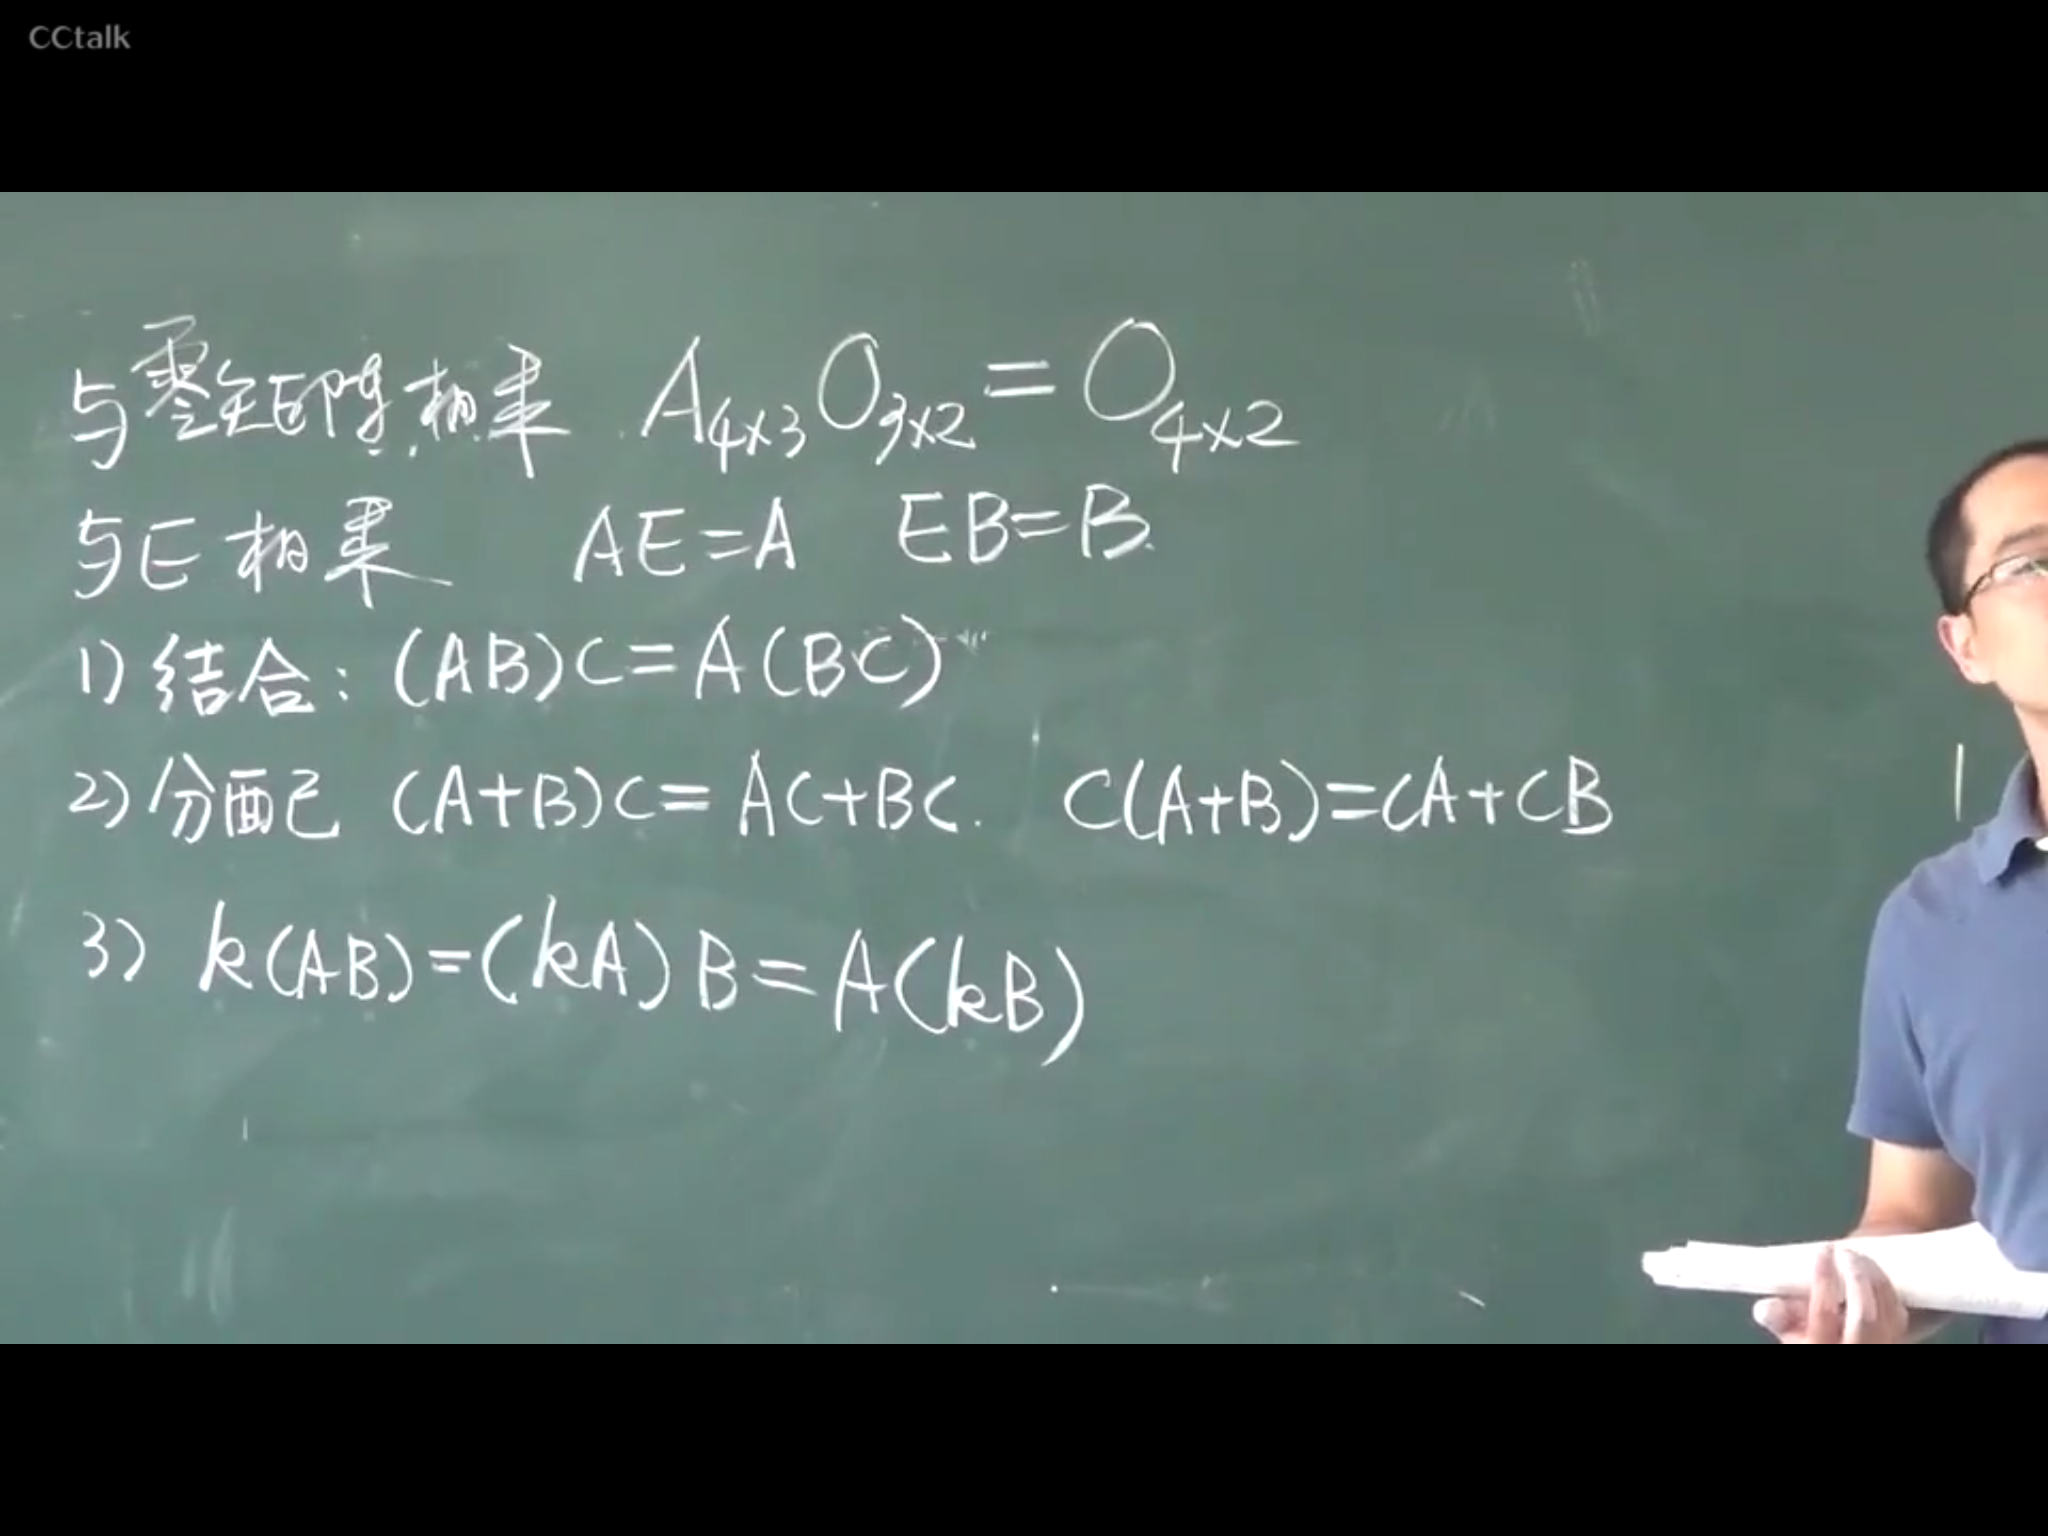 CCtalk
与零矩阵相乘 A₄ₓ₃O₃ₓ₂=O₄ₓ₂
与E相乘 AE=A EB=B.
1) 结合: (AB)C=A(BC)
2) 分配 (A+B)C=AC+BC. C(A+B)=CA+CB
3) k(AB)=(kA)B=A(kB)